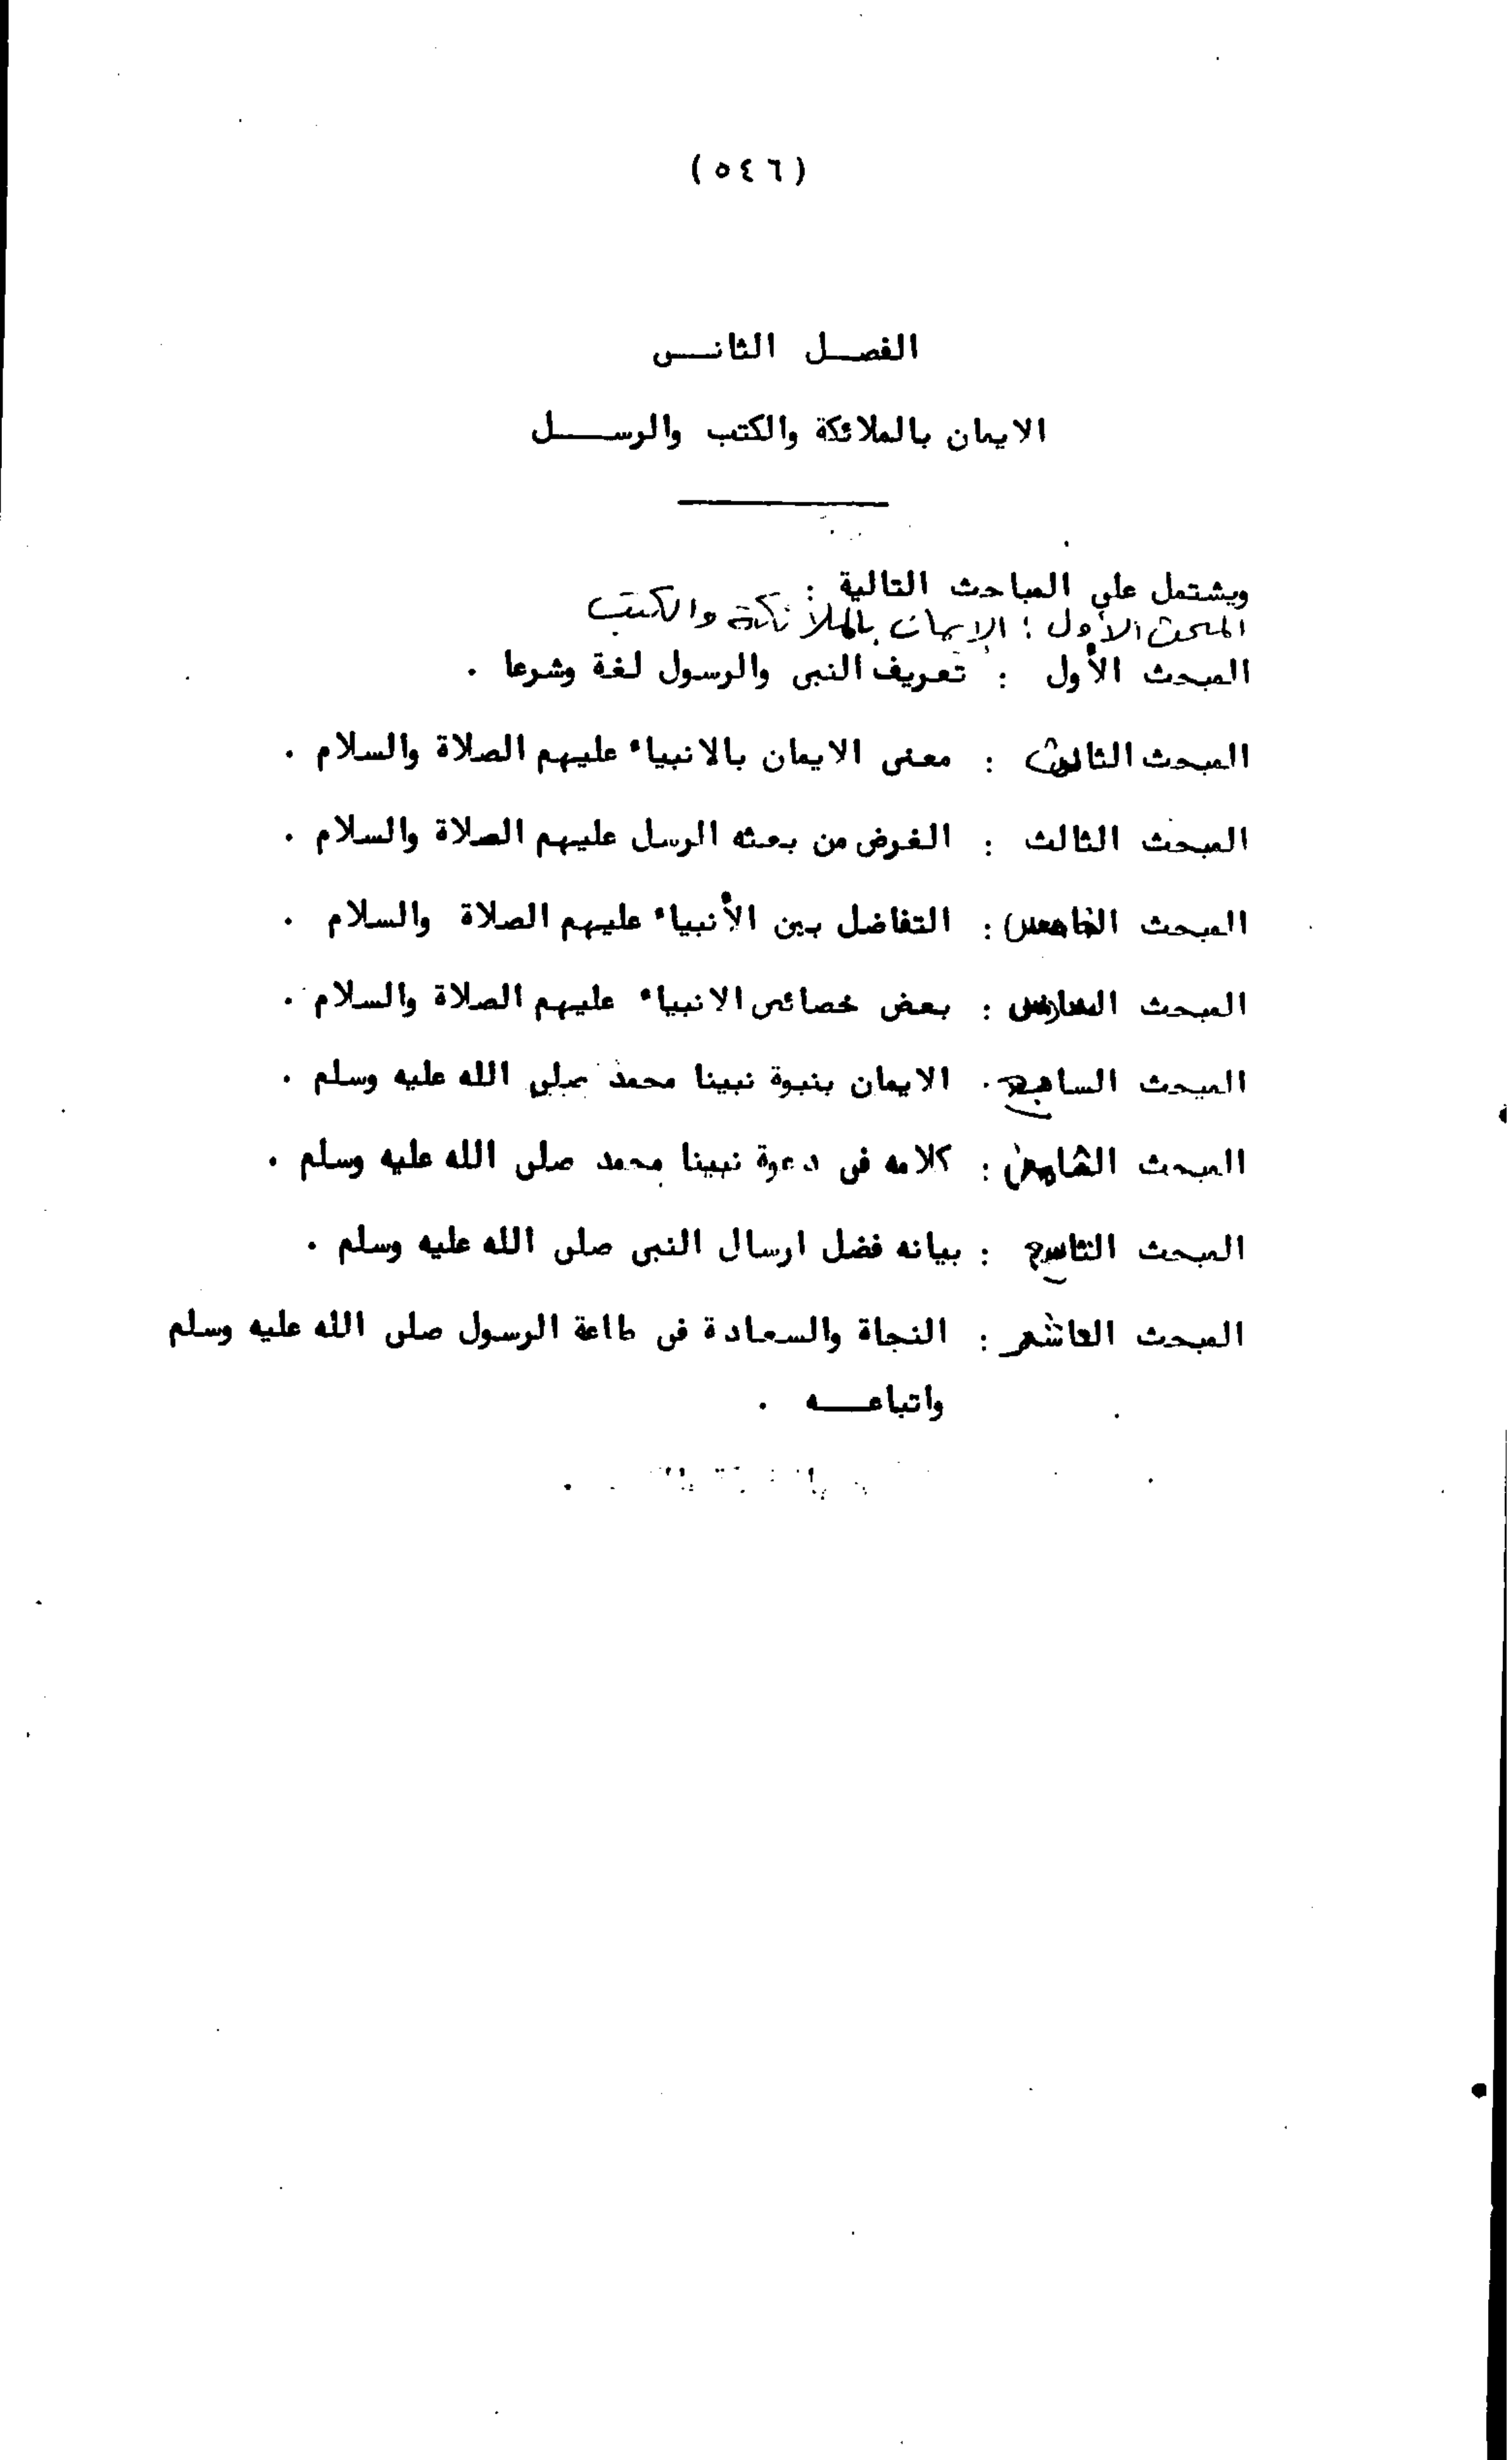 (٥٤٦)
الفصـــل الثانـــى
الايمان بالملائكة والكتب والرســـــل
ويشتمل على المباحث التالية :
المبحث الأول : الإيمان بالملائكة والكتب
المبحث الأول : تعريف النبى والرسول لغة وشرعا .
المبحث الثالث : معنى الايمان بالانبياء عليهم الصلاة والسلام .
المبحث الثالث : الغرض من بعثه الرسل عليهم الصلاة والسلام .
المبحث الخامس : التفاضل بين الأنبياء عليهم الصلاة والسلام .
المبحث السادس : بعض خصائص الانبياء عليهم الصلاة والسلام .
المبحث السابع . الايمان بنبوة نبينا محمد صلى الله عليه وسلم .
المبحث الثامن : كلامه فى دعوة نبينا محمد صلى الله عليه وسلم .
المبحث التاسع : بيانه فضل ارسال النبى صلى الله عليه وسلم .
المبحث العاشر : النجاة والسعادة فى طاعة الرسول صلى الله عليه وسلم
واتباعـــــه .